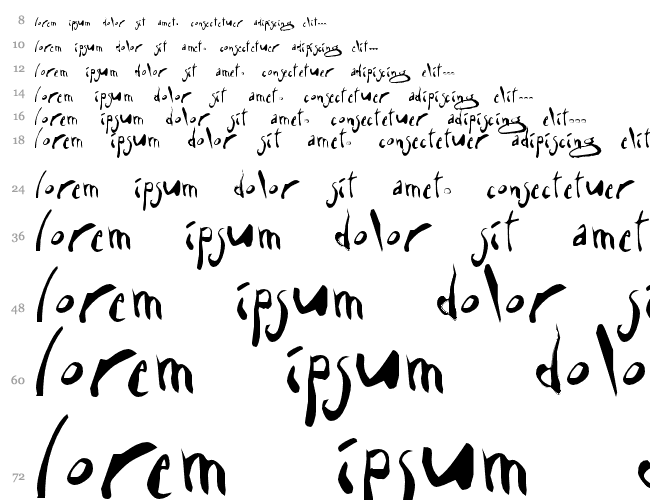 8 lorem ipsum dolor sit amet. consectetuer adipiscing elit...
10 lorem ipsum dolor sit amet. consectetuer adipiscing elit...
12 lorem ipsum dolor sit amet. consectetuer adipiscing elit...
14 lorem ipsum dolor sit amet. consectetuer adipiscing elit...
16 lorem ipsum dolor sit amet. consectetuer adipiscing elit...
18 lorem ipsum dolor sit amet. consectetuer adipiscing elit
24 lorem ipsum dolor sit amet. consectetuer
36 lorem ipsum dolor sit amet
48 lorem ipsum dolor si
60 lorem ipsum dolo
72 lorem ipsum